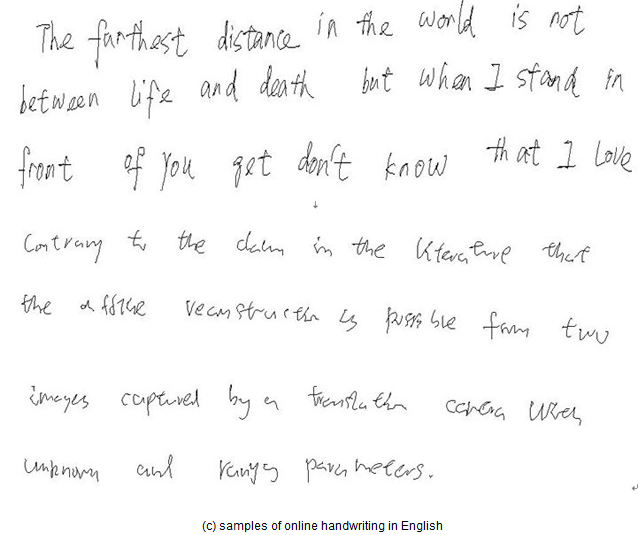 The furthest distance in the world is not
between life and death but when I stand in
front of you get don't know that I love
Contrary to the claim in the literature that
the affine reconstruction is possible from two
images captured by a translation camera with
unknown and varying parameters.
(c) samples of online handwriting in English